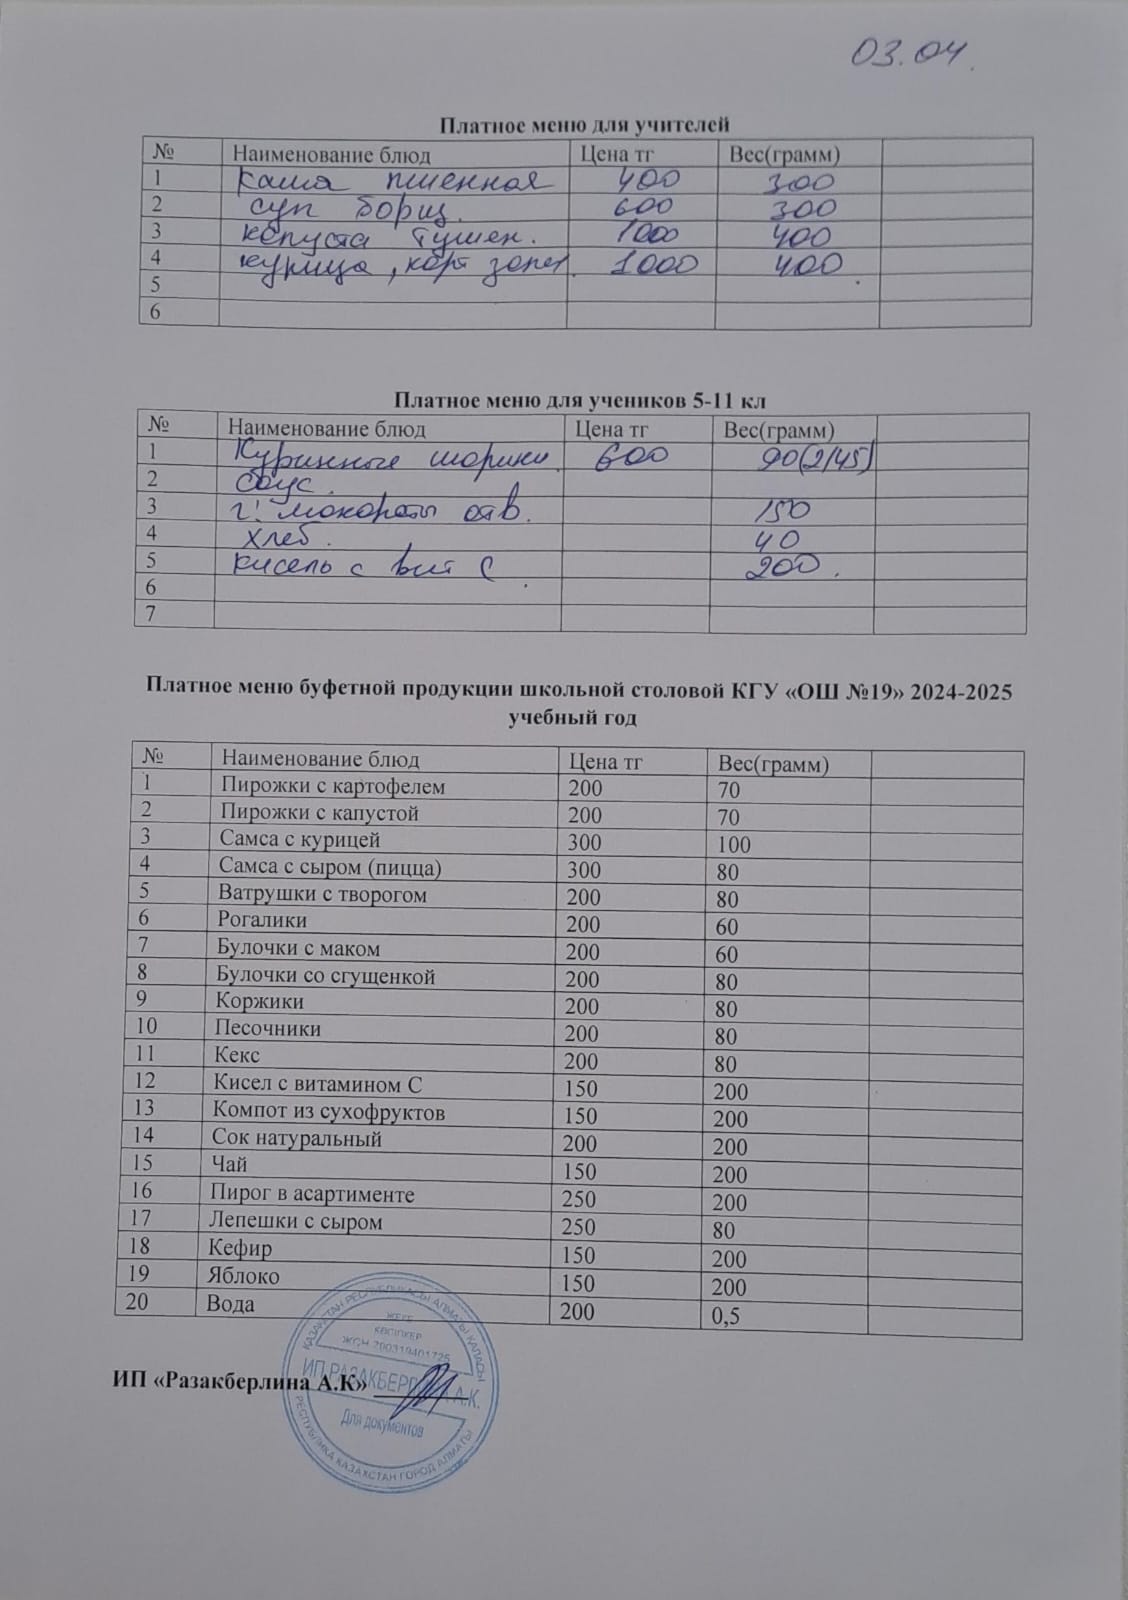 03.04.
Платное меню для учителей
№ Наименование блюд Цена тг Вес(грамм)
1 Каша пшенная 400 300
2 суп борщ. 600 300
3 капуста тушен. 1000 400
4 курица, карт запеч. 1000 400
5
6
Платное меню для учеников 5-11 кл
№ Наименование блюд Цена тг Вес(грамм)
1 Куринные шарики 600 90(2/45)
2 соус.
3 г: макароны отв. 150
4 хлеб. 40
5 кисель с вит С 200.
6
7
Платное меню буфетной продукции школьной столовой КГУ «ОШ №19» 2024-2025
учебный год
№ Наименование блюд Цена тг Вес(грамм)
1 Пирожки с картофелем 200 70
2 Пирожки с капустой 200 70
3 Самса с курицей 300 100
4 Самса с сыром (пицца) 300 80
5 Ватрушки с творогом 200 80
6 Рогалики 200 60
7 Булочки с маком 200 60
8 Булочки со сгущенкой 200 80
9 Коржики 200 80
10 Песочники 200 80
11 Кекс 200 80
12 Кисел с витамином С 150 200
13 Компот из сухофруктов 150 200
14 Сок натуральный 200 200
15 Чай 150 200
16 Пирог в асартименте 250 200
17 Лепешки с сыром 250 80
18 Кефир 150 200
19 Яблоко 150 200
20 Вода 200 0,5
ИП «Разакберлина А.К»
ҚАЗАҚСТАН РЕСПУБЛИКАСЫ АЛМАТЫ ҚАЛАСЫ
ЖЕКЕ
КӘСІПКЕР
ЖСН
ИП РАЗАКБЕРЛИНА А.К.
Для документов
РЕСПУБЛИКА КАЗАХСТАН ГОРОД АЛМАТЫ